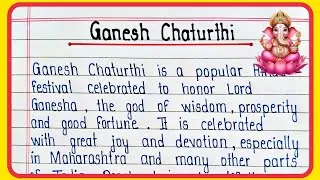 Ganesh Chaturthi
Ganesh Chaturthi is a popular
festival celebrated to honor Lord
Ganesha, the god of wisdom, prosperity
and good fortune. It is celebrated
with great joy and devotion, especially
in Maharashtra and many other parts
of